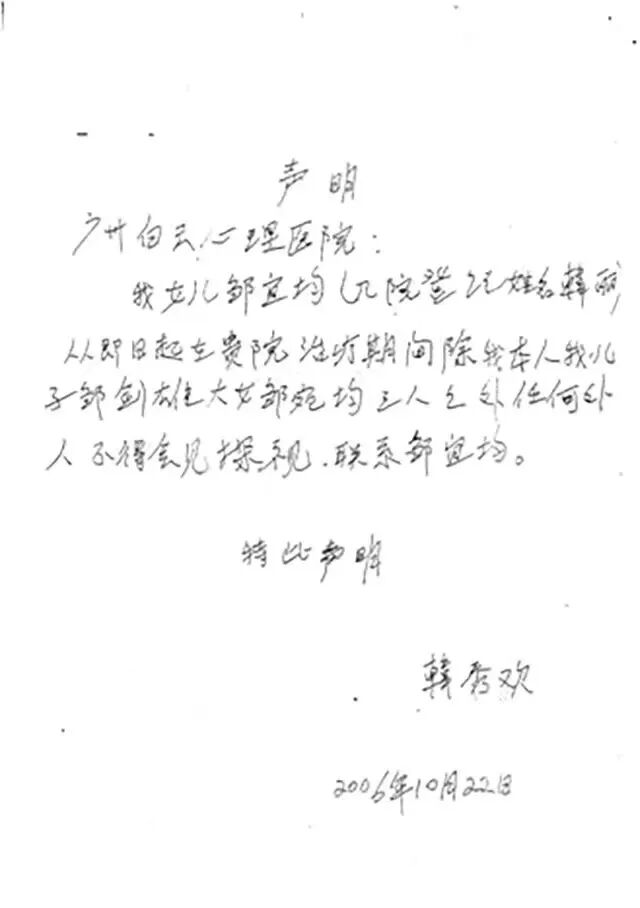 声明
广州白云心理医院：
我女儿邹宜均（入院登记姓名韩丽
从即日起在贵院治疗期间除我本人我儿
子邹剑雄大女邹宛均三人之外任何外
人不得会见探视、联系邹宜均。
特此声明
韩秀欢
2006年10月22日